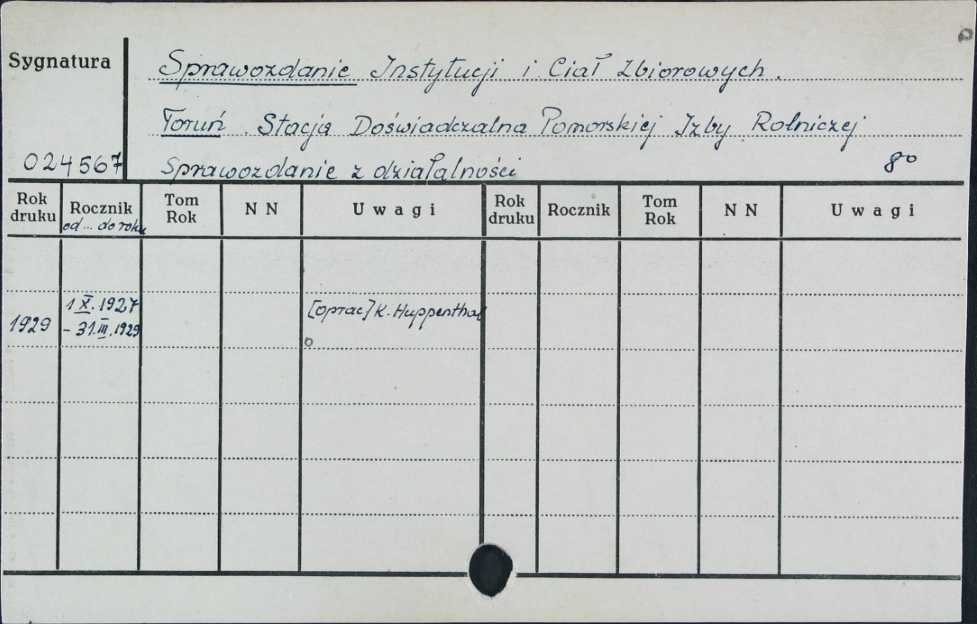 Sygnatura
Sprawozdanie Instytucji i Ciał Zbiorowych.
Toruń. Stacja Doświadczalna Pomorskiej Izby Rolniczej
024567 Sprawozdanie z działalności 8°
Rok druku Rocznik od... do roku Tom Rok N N Uwagi Rok druku Rocznik Tom Rok N N Uwagi
1 X. 1927 [oprac] K. Huppenthal
1929 - 31.III.1929